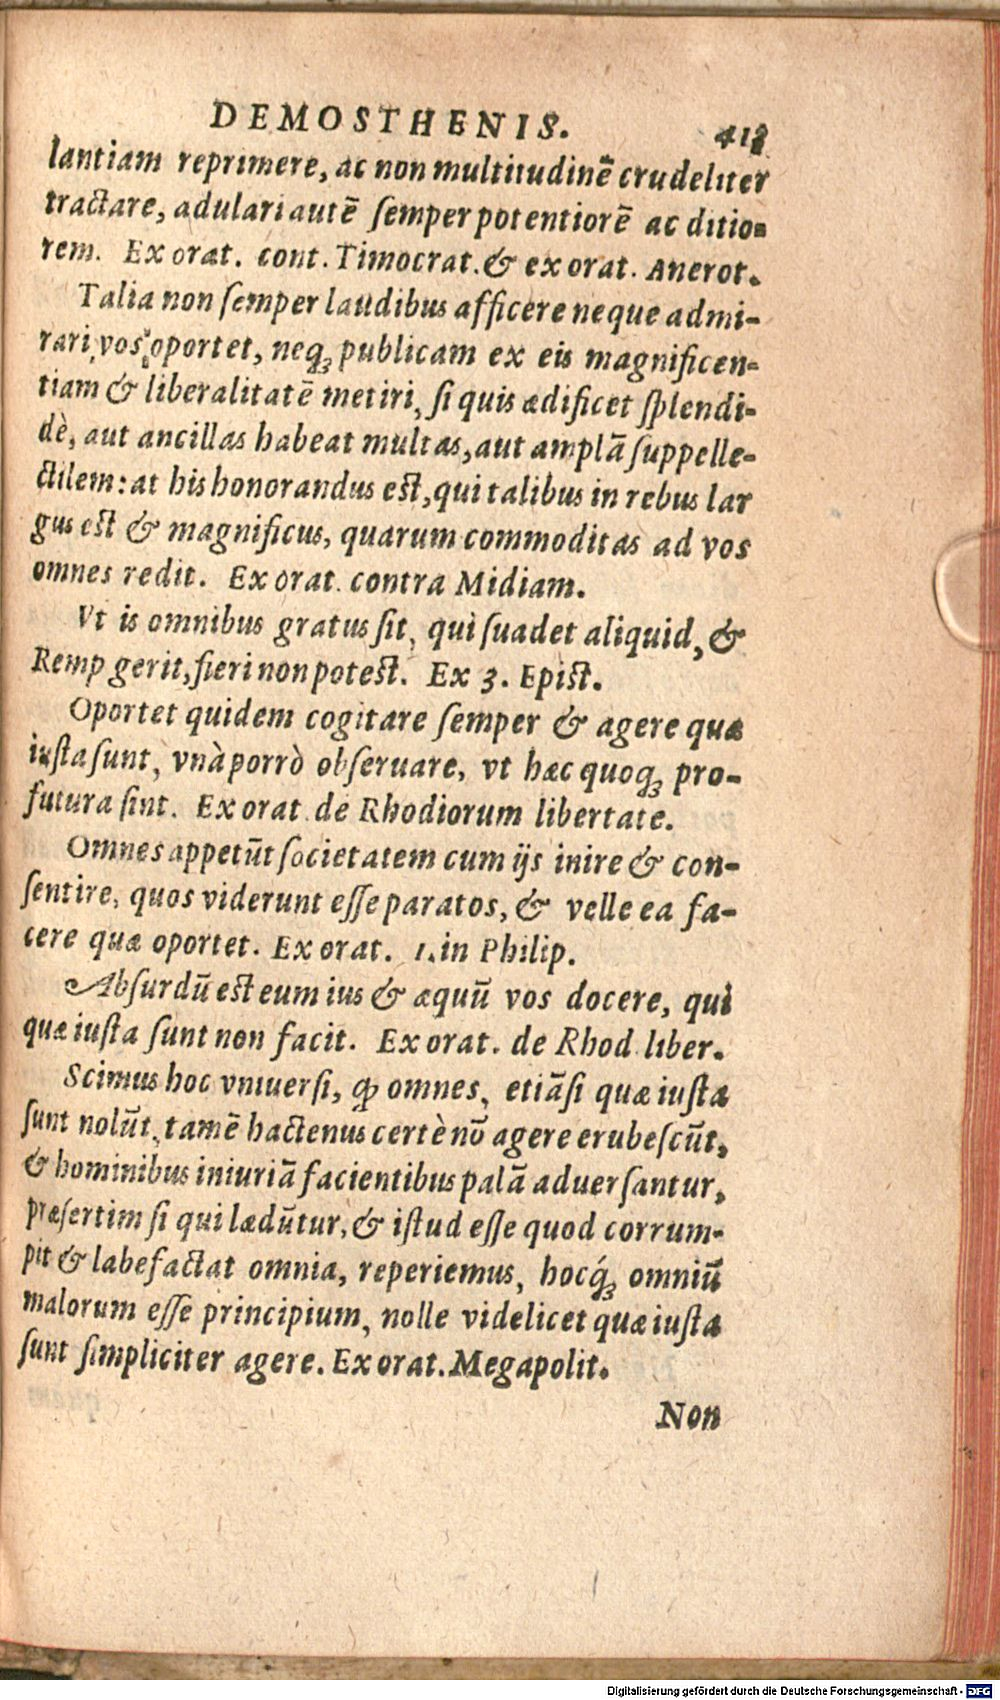 DEMOSTHENIS. 418
lantiam reprimere, ac non multitudinē crudeliter
tractare, adulari autē ſemper potentiorē ac ditio-
rem. Ex orat. cont. Timocrat. & ex orat. Anerot.
Talia non ſemper laudibus afficere neque admi-
rari vos oportet, neq; publicam ex eis magnificen-
tiam & liberalitatē metiri, ſi quis ædificet ſplendi-
dè, aut ancillas habeat multas, aut amplā ſuppelle-
ctilem: at his honorandus est, qui talibus in rebus lar
gus est & magnificus, quarum commoditas ad vos
omnes redit. Ex orat. contra Midiam.
Vt is omnibus gratus ſit, qui ſuadet aliquid, &
Remp gerit, fieri non potest. Ex 3. Epist.
Oportet quidem cogitare ſemper & agere quæ
iuſta ſunt, vnà porrò obſeruare, vt hæc quoq; pro-
futura ſint. Ex orat. de Rhodiorum libertate.
Omnes appetūt ſocietatem cum ijs inire & con-
ſentire, quos viderunt eſſe paratos, & velle ea fa-
cere quæ oportet. Ex orat. 1. in Philip.
Abſurdū est eum ius & æquū vos docere, qui
quæ iuſta ſunt non facit. Ex orat. de Rhod. liber.
Scimus hoc vniuerſi, qp omnes, etiāſi quæ iuſta
ſunt nolūt, tamē hactenus certè nō agere erubeſcūt,
& hominibus iniuriā facientibus palā aduerſantur,
præſertim ſi qui lædūtur, & iſtud eſſe quod corrum-
pit & labefactat omnia, reperiemus, hocq́; omniū
malorum eſſe principium, nolle videlicet quæ iuſta
ſunt ſimpliciter agere. Ex orat. Megapolit.
Non
Digitalisierung gefördert durch die Deutsche Forschungsgemeinschaft - DFG